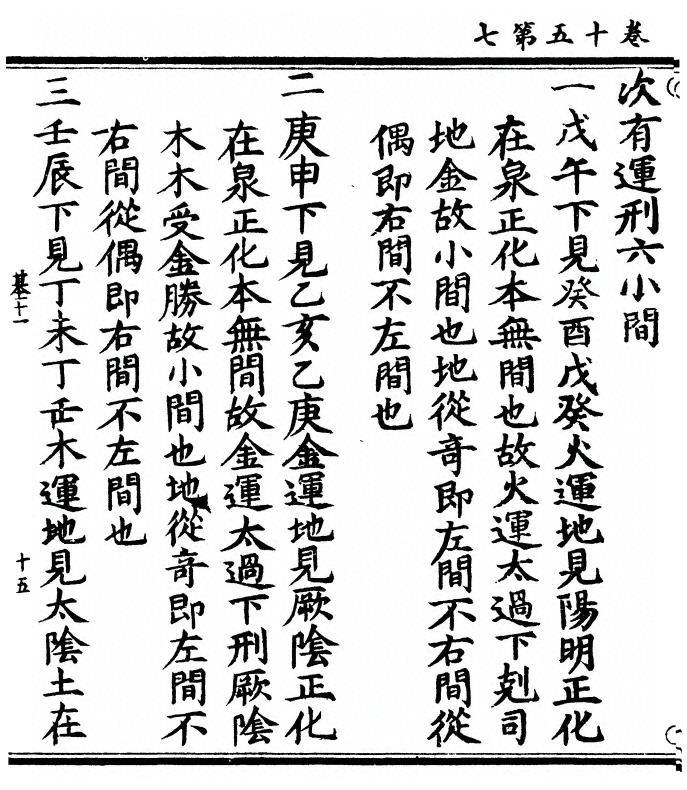 卷十五第七
次有運刑六小間
一戊午下見癸酉戊癸火運地見陽明正化
在泉正化本無間也故火運太過下剋司
地金故小間也地從奇即左間不右間從
偶即右間不左間也
二庚申下見乙亥乙庚金運地見厥陰正化
在泉正化本無間故金運太過下刑厥陰
木木受金勝故小間也地從奇即左間不
右間從偶即右間不左間也
三壬辰下見丁未丁壬木運地見太陰土在
墓十一
十五